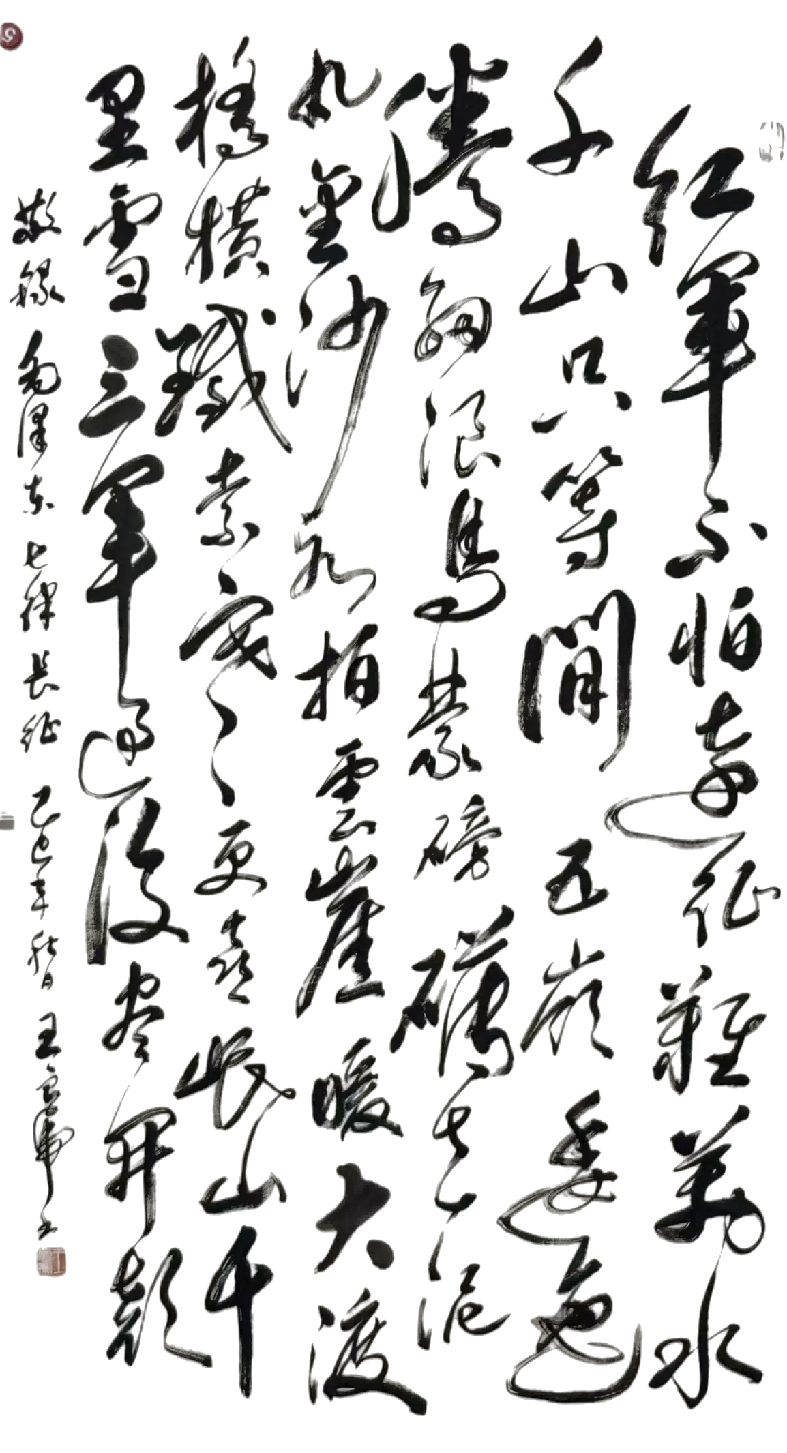 红軍不怕遠征難萬水
千山只等閒五嶺逶迤
騰細浪烏蒙磅礴走泥
丸金沙水拍雲崖暖大渡
橋横鐵索寒更喜岷山千
里雪三軍過後尽開顔
敬録毛澤东七律長征 乙巳年秋日 王书